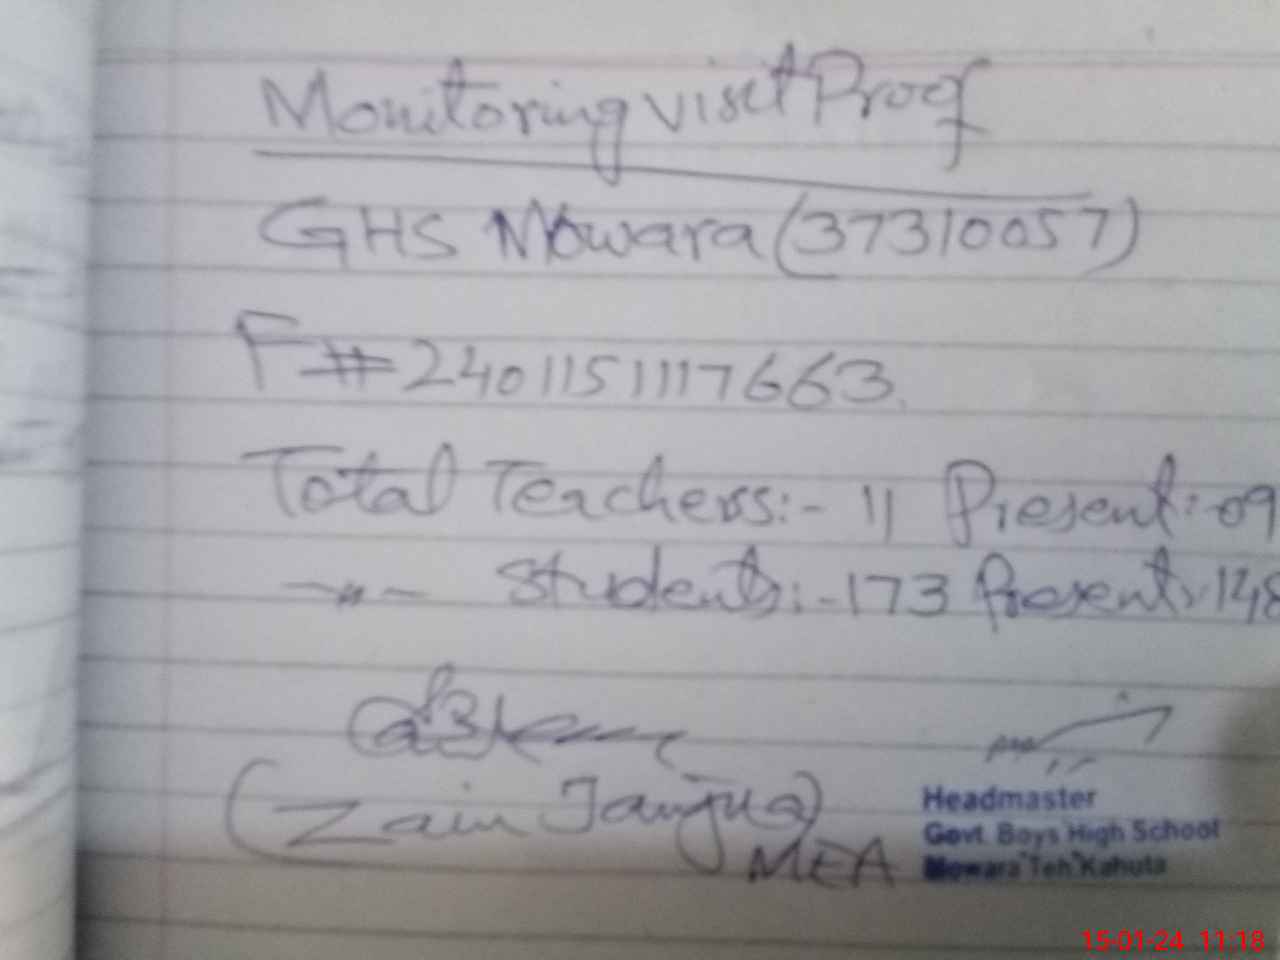 Monitoring visit Proof
GHS Mowara (37310057)
F# 2401151117663.
Total Teachers:- 11 Present:-09
-"- Students:-173 Present:-148
(Zain Janjua)
MEA
Headmaster
Govt. Boys High School
Mowara Teh Kahuta
15-01-24 11:18